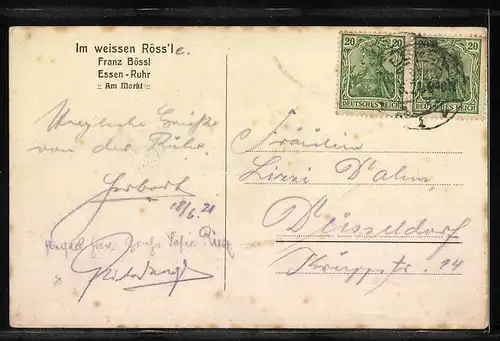 Im weissen Röss'le.
Franz Bössl
Essen-Ruhr
:: Am Markt ::
20 20
DEUTSCHES REICH
20 20
DEUTSCHES REICH
Herzliche Grüße
von der Ruhr.
Herbert
18/6. 21
Fräulein
Lizzi Dahm
Düsseldorf
Kruppstr. 14